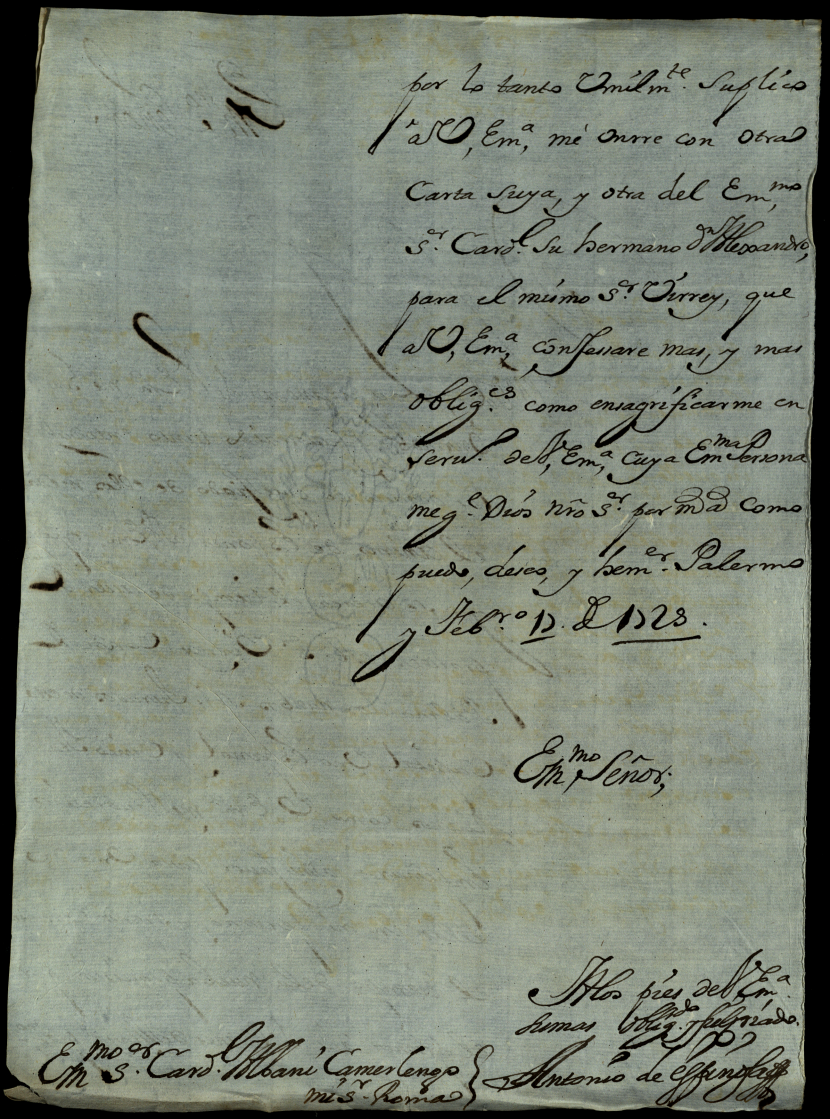 por lo tanto Umilm.te Suplico
a V, Em.a, mé onrre con otra
Carta suya, y otra del Em,mo
S.er Card.l su hermano D.n Alexandro,
para el mismo S.er Virrey, que
a V, Em,a confessare mas, y mas
oblig.es como ensagrificarme en
serv.o de V, Em,a cuya Em.ma Persona
me g.e Dios nro S.er por m.s a.s como
puede, deseo, y hem.er Palermo
y Feb.ro 17. de 1728.
Em,mo Señor,
A los pies de V, Em.a
su mas oblig.do y
Antonio de espinosa
Em,mo S.er Card.l Albani Camerlengo
mi S.r Roma